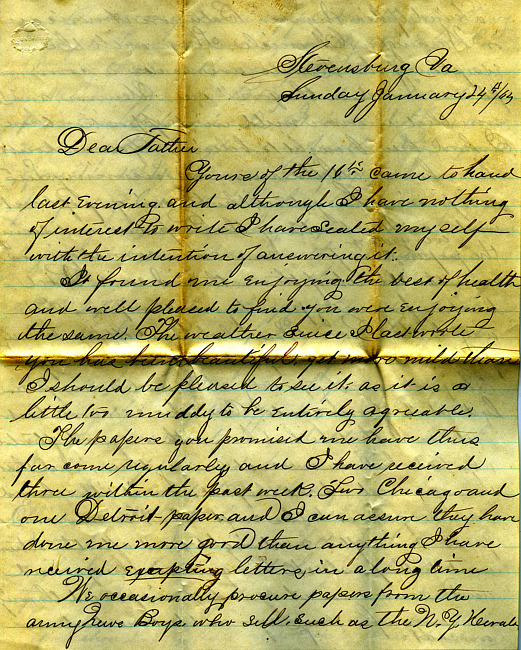 Stevensburg Va
Sunday January 24th/64
Dear Father
Yours of the 16th came to hand
last Evening. and although I have nothing
of interest to write I have seated myself
with the intention of answering it.
It found me enjoying the best of health
and well pleased to find you were enjoying
the same. The weather since I last wrote
you has been beautiful, yet more mild than
I should be pleased to see it. as it is a
little too muddy to be entirely agreeable.
The papers you promised me have thus
far come regularly and I have received
three within the past week. Two Chicago and
one Detroit paper and I can assure they have
done me more good than anything I have
received excepting letters, in a long time
We occasionally procure papers from the
army News Boys who sell. such as the N.Y. Herald